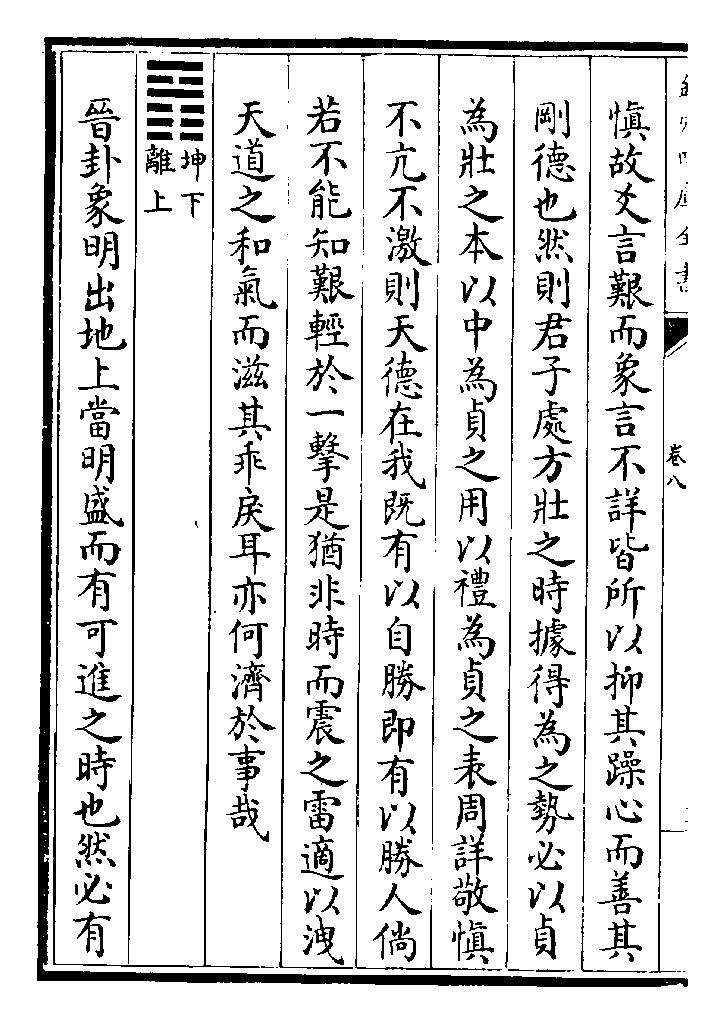 欽定四庫全書
卷八
慎故爻言艱而象言不詳皆所以抑其躁心而善其
剛德也然則君子處方壯之時據得為之勢必以貞
為壯之本以中為貞之用以禮為貞之表周詳敬慎
不亢不激則天德在我既有以自勝即有以勝人倘
若不能知艱輕於一擊是猶非時而震之雷適以洩
天道之和氣而滋其乖戾耳亦何濟於事哉
坤下
離上
晉卦象明出地上當明盛而有可進之時也然必有